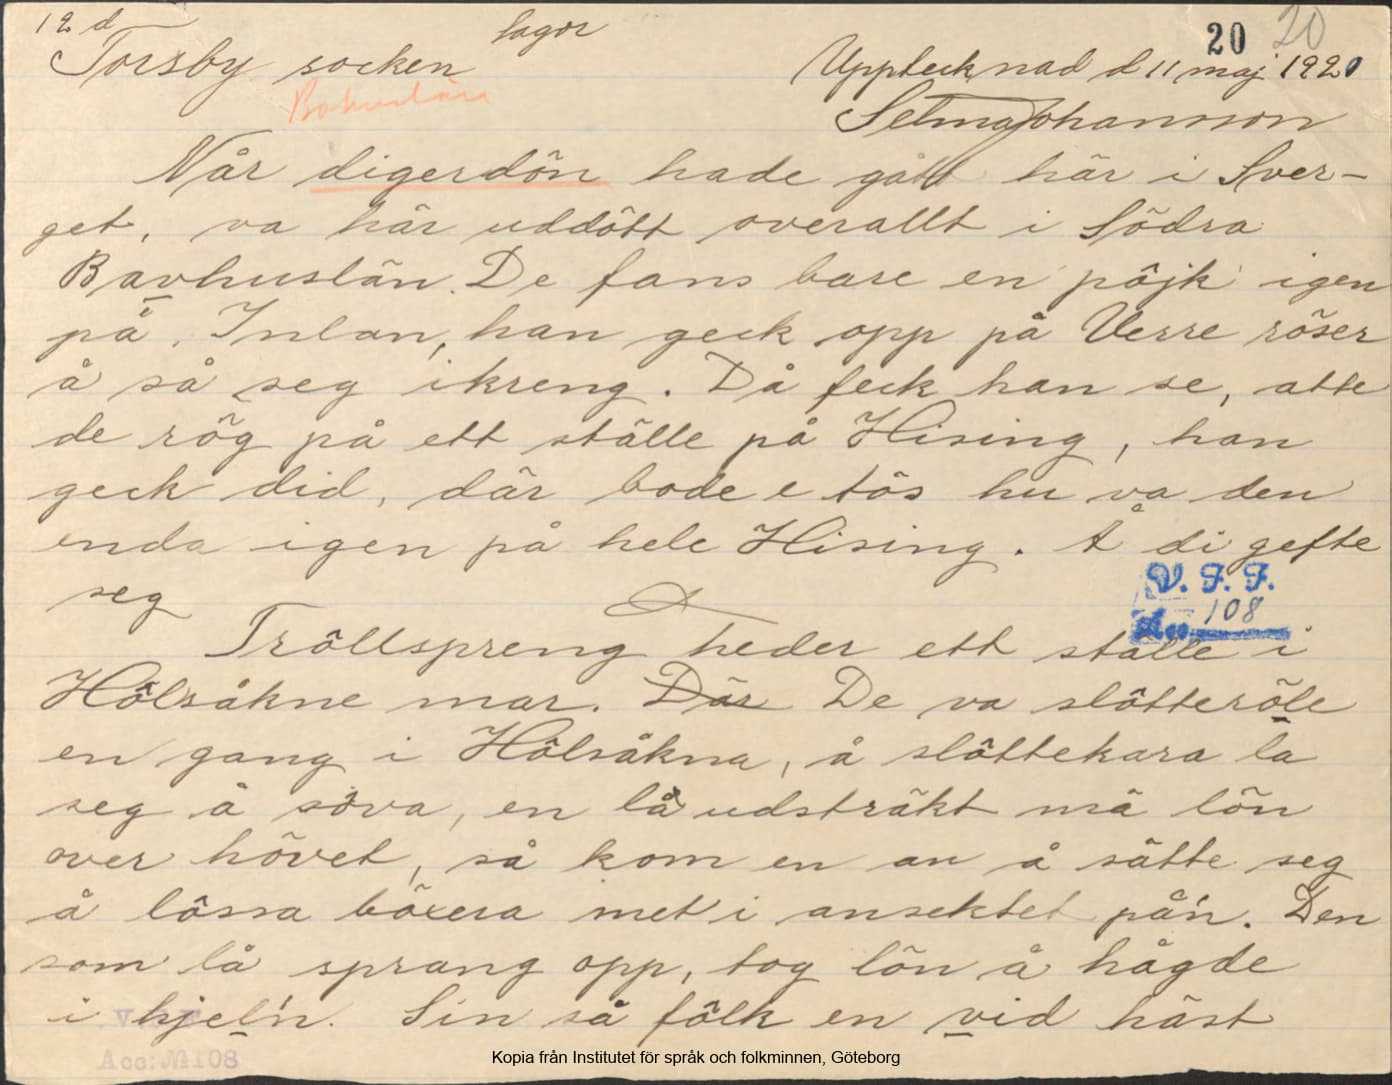 12 d
sagor
20 20
Torsby socken
Upptecknad d 11 maj 1920
Bohuslän
Selma Johansson
Når digerdön hade gått här i Sver-
get, va här uddôtt overallt i Södra
Bavhuslän. De fans bare en pôjk igen
på Inlan, han geck opp på Verre röser
å så seg ikreng. Då feck han se, atte
de rög på ett ställe på Hising, han
geck did, där bode e tös hu va den
enda igen på hele Hising. Å di gefte
seg
V. F. F.
Acc. 108
Trôllspreng heder ett ställe i
Hôlsåkne mar. Där De va slôtteröle
en gang i Hôlsåkna, å slôttekara la
seg å sôva, en lå udsträkt mä lön
over hövet, så kom en an å sätte seg
å lôssa böxera met i ansektet pån. Den
som lå sprang opp, tog lön å högde
i hjeln. Sin så fôlk en vid häst
V. F. F.
Acc: № 108
Kopia från Institutet för språk och folkminnen, Göteborg